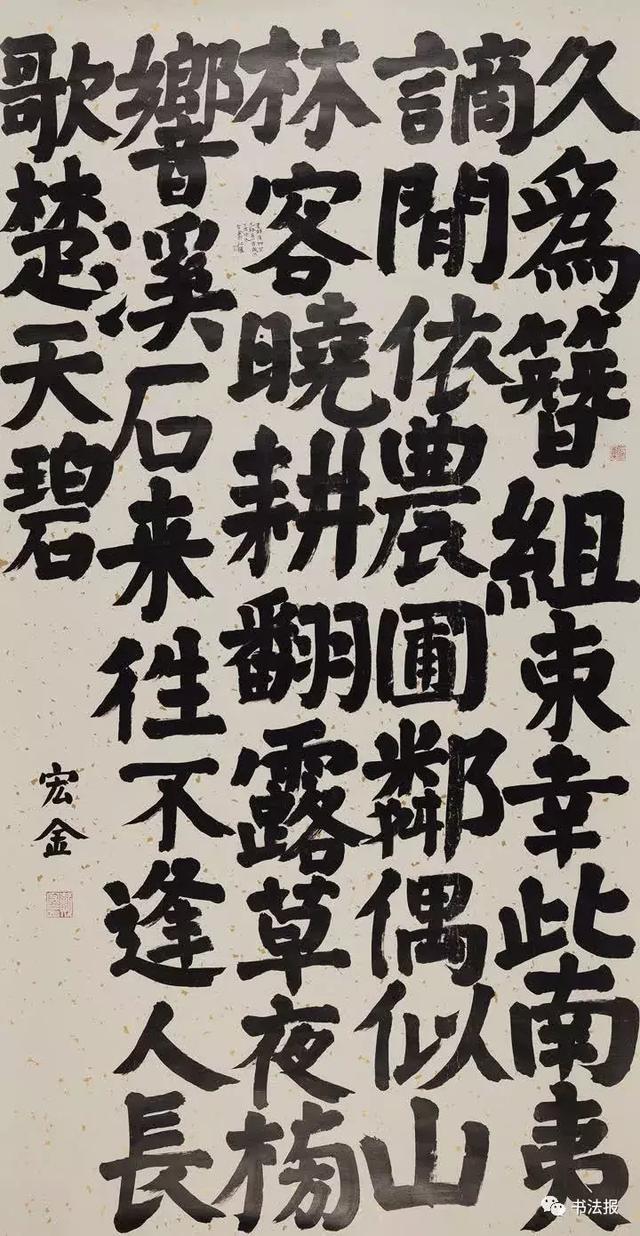 久爲簪組束幸此南夷
謫閒依農圃鄰偶似山
林客曉耕翻露草夜榜
響溪石来徃不逢人長
歌楚天碧
宏金
书法报